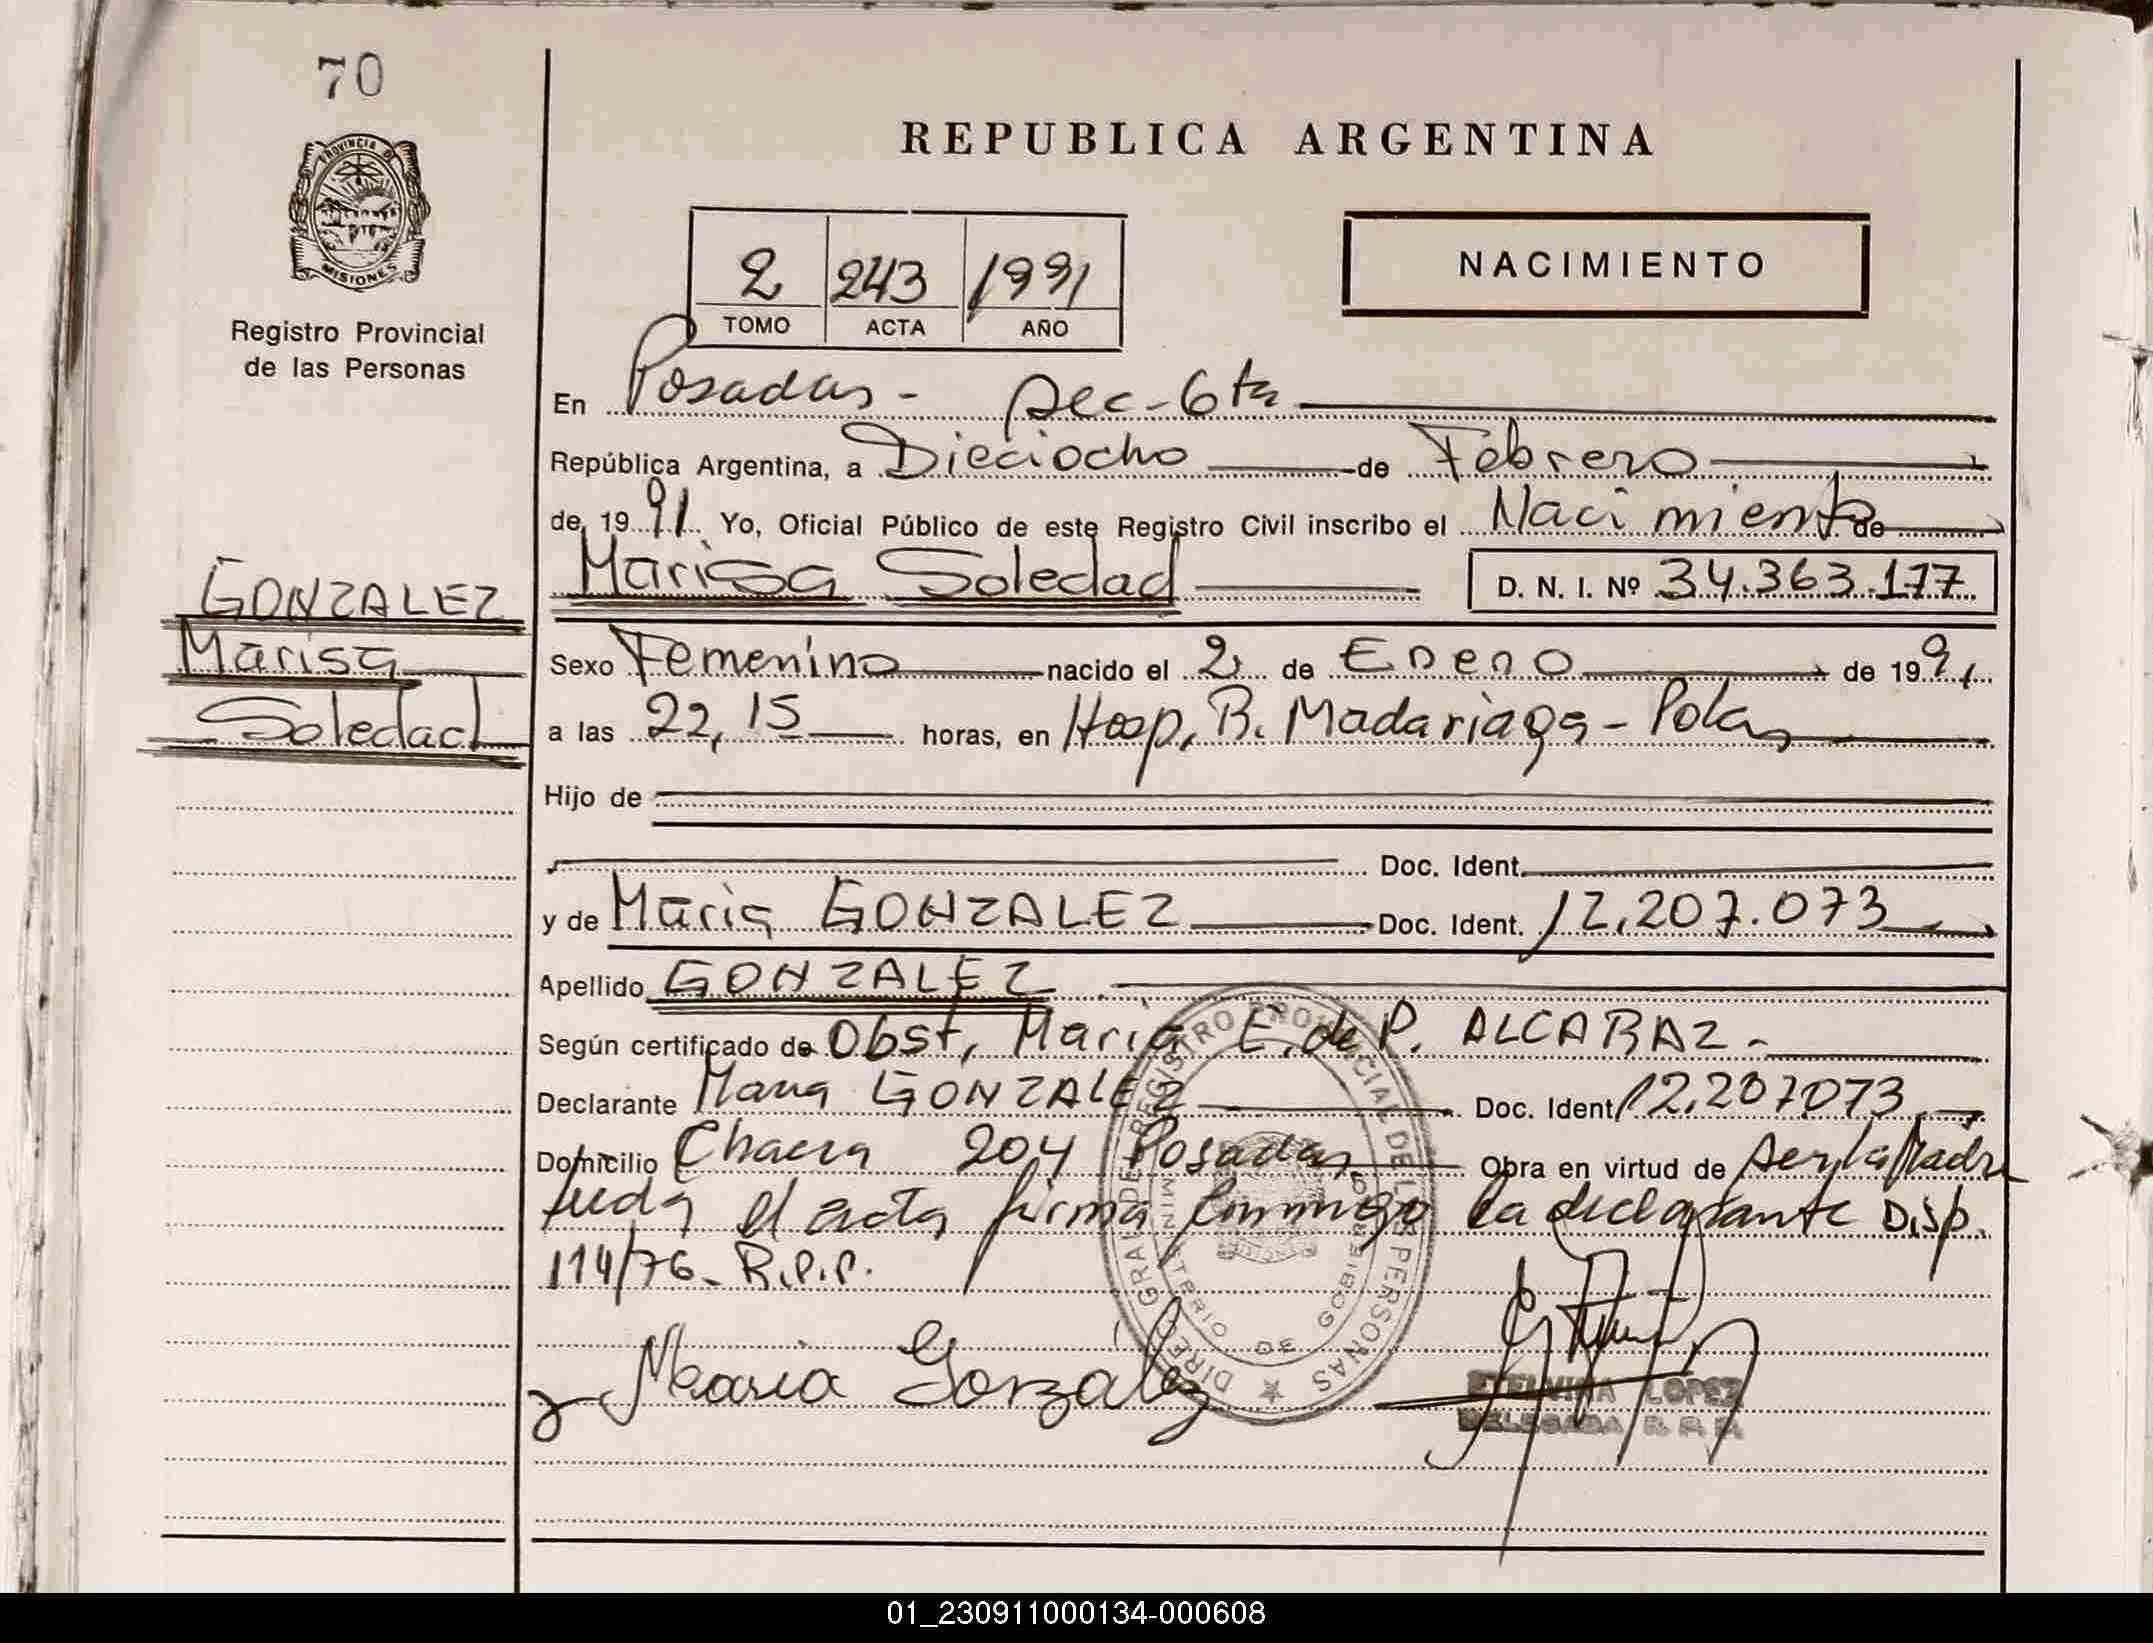 70
PROVINCIA DE
MISIONES
Registro Provincial
de las Personas
REPUBLICA ARGENTINA
2 243 1991
TOMO ACTA AÑO
NACIMIENTO
En Posadas - Sec - 6ta
República Argentina, a Dieciocho de Febrero
de 19 91 Yo, Oficial Público de este Registro Civil inscribo el Nacimiento de
Marisa Soledad D. N. I. Nº 34.363.177
GONZALEZ
Marisa
Soledad
Sexo Femenino nacido el 2 de Enero de 19 91
a las 22,15 horas, en Hosp. B. Madariaga - Pdas
Hijo de
Doc. Ident.
y de Maria GONZALEZ Doc. Ident. 12.207.073
Apellido GONZALEZ
Según certificado de Obst, Maria E. de P. ALCARAZ -
Declarante Maria GONZALEZ Doc. Ident. 12.207073
Domicilio Chacra 204 Posadas Obra en virtud de ser la Madre
Leida el acta firma conmigo la declarante Disp.
114/76 - R.P.P.
DIREC. GRAL DE REGISTRO PROVINCIAL DE LAS PERSONAS
MINISTERIO DE GOBIERNO
Maria Gonzalez
ETELVINA LOPEZ
DELEGADA R. P. P.
01_230911000134-000608